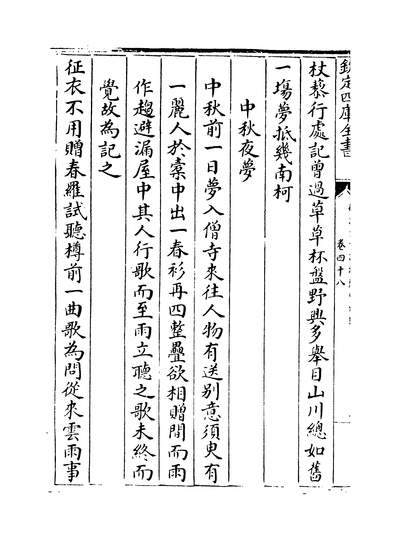 欽定四庫全書
卷四十八
杖藜行處記曾過草草杯盤野興多舉目山川總如舊
一塲夢抵幾南柯
中秋夜夢
中秋前一日夢入僧寺來往人物有送别意須臾有
一麗人於橐中出一春衫再四整疊欲相贈間而雨
作趨避漏屋中其人行歌而至雨立聽之歌未終而
覺故為記之
征衣不用贈春羅試聽樽前一曲歌為問從來雲雨事